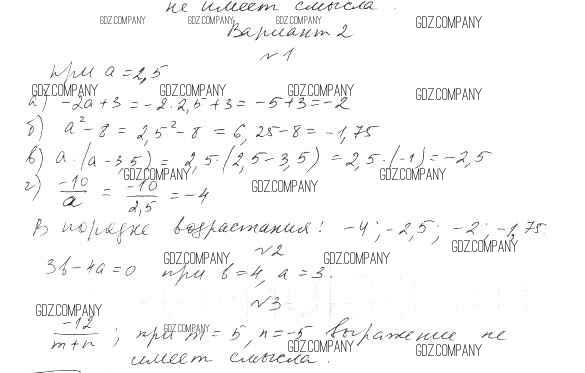 не имеет смысла.
GDZ.COMPANY GDZ.COMPANY GDZ.COMPANY GDZ.COMPANY
Вариант 2
№1
при a = 2,5
GDZ.COMPANY GDZ.COMPANY GDZ.COMPANY GDZ.COMPANY
а) -2a+3 = -2·2,5+3 = -5+3 = -2
б) a²-8 = 2,5²-8 = 6,25-8 = -1,75
в) a·(a-3,5) = 2,5·(2,5-3,5) = 2,5·(-1) = -2,5
GDZ.COMPANY GDZ.COMPANY GDZ.COMPANY
г) -10/a = -10/2,5 = -4
В порядке возрастания: -4; -2,5; -2; -1,75
GDZ.COMPANY
№2
GDZ.COMPANY GDZ.COMPANY
3b-4a=0 при b=4, a=3.
№3
GDZ.COMPANY
-12/m+n ; при m=5, n=-5 выражение не
GDZ.COMPANY GDZ.COMPANY GDZ.COMPANY
имеет смысла.